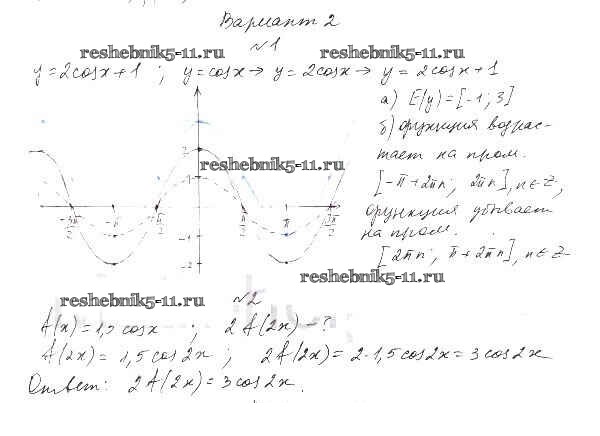 Вариант 2
№1
reshebnik5-11.ru reshebnik5-11.ru
y = 2cosx + 1 ; y = cosx → y = 2cosx → y = 2cosx + 1
а) E(y) = [-1; 3]
б) функция возрас-
тает на пром.
[-π + 2πn; 2πn], n ∈ Z;
функция убывает
на пром.
[2πn; π + 2πn], n ∈ Z
reshebnik5-11.ru
2
1
-π
π
-1
-2
reshebnik5-11.ru
reshebnik5-11.ru
№2
A(x) = 1,5 cosx ; 2A(2x) - ?
A(2x) = 1,5 cos2x ; 2A(2x) = 2·1,5 cos2x = 3 cos2x
Ответ: 2A(2x) = 3 cos2x.